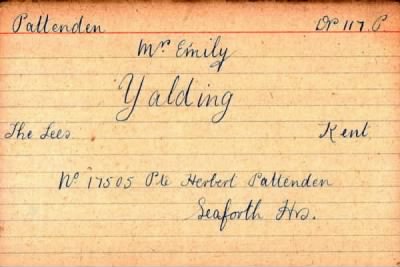 Pattenden DP 117. P.
Mrs Emily
Yalding
The Lees Kent
No 17505 Pte Herbert Pattenden
Seaforth Hrs.